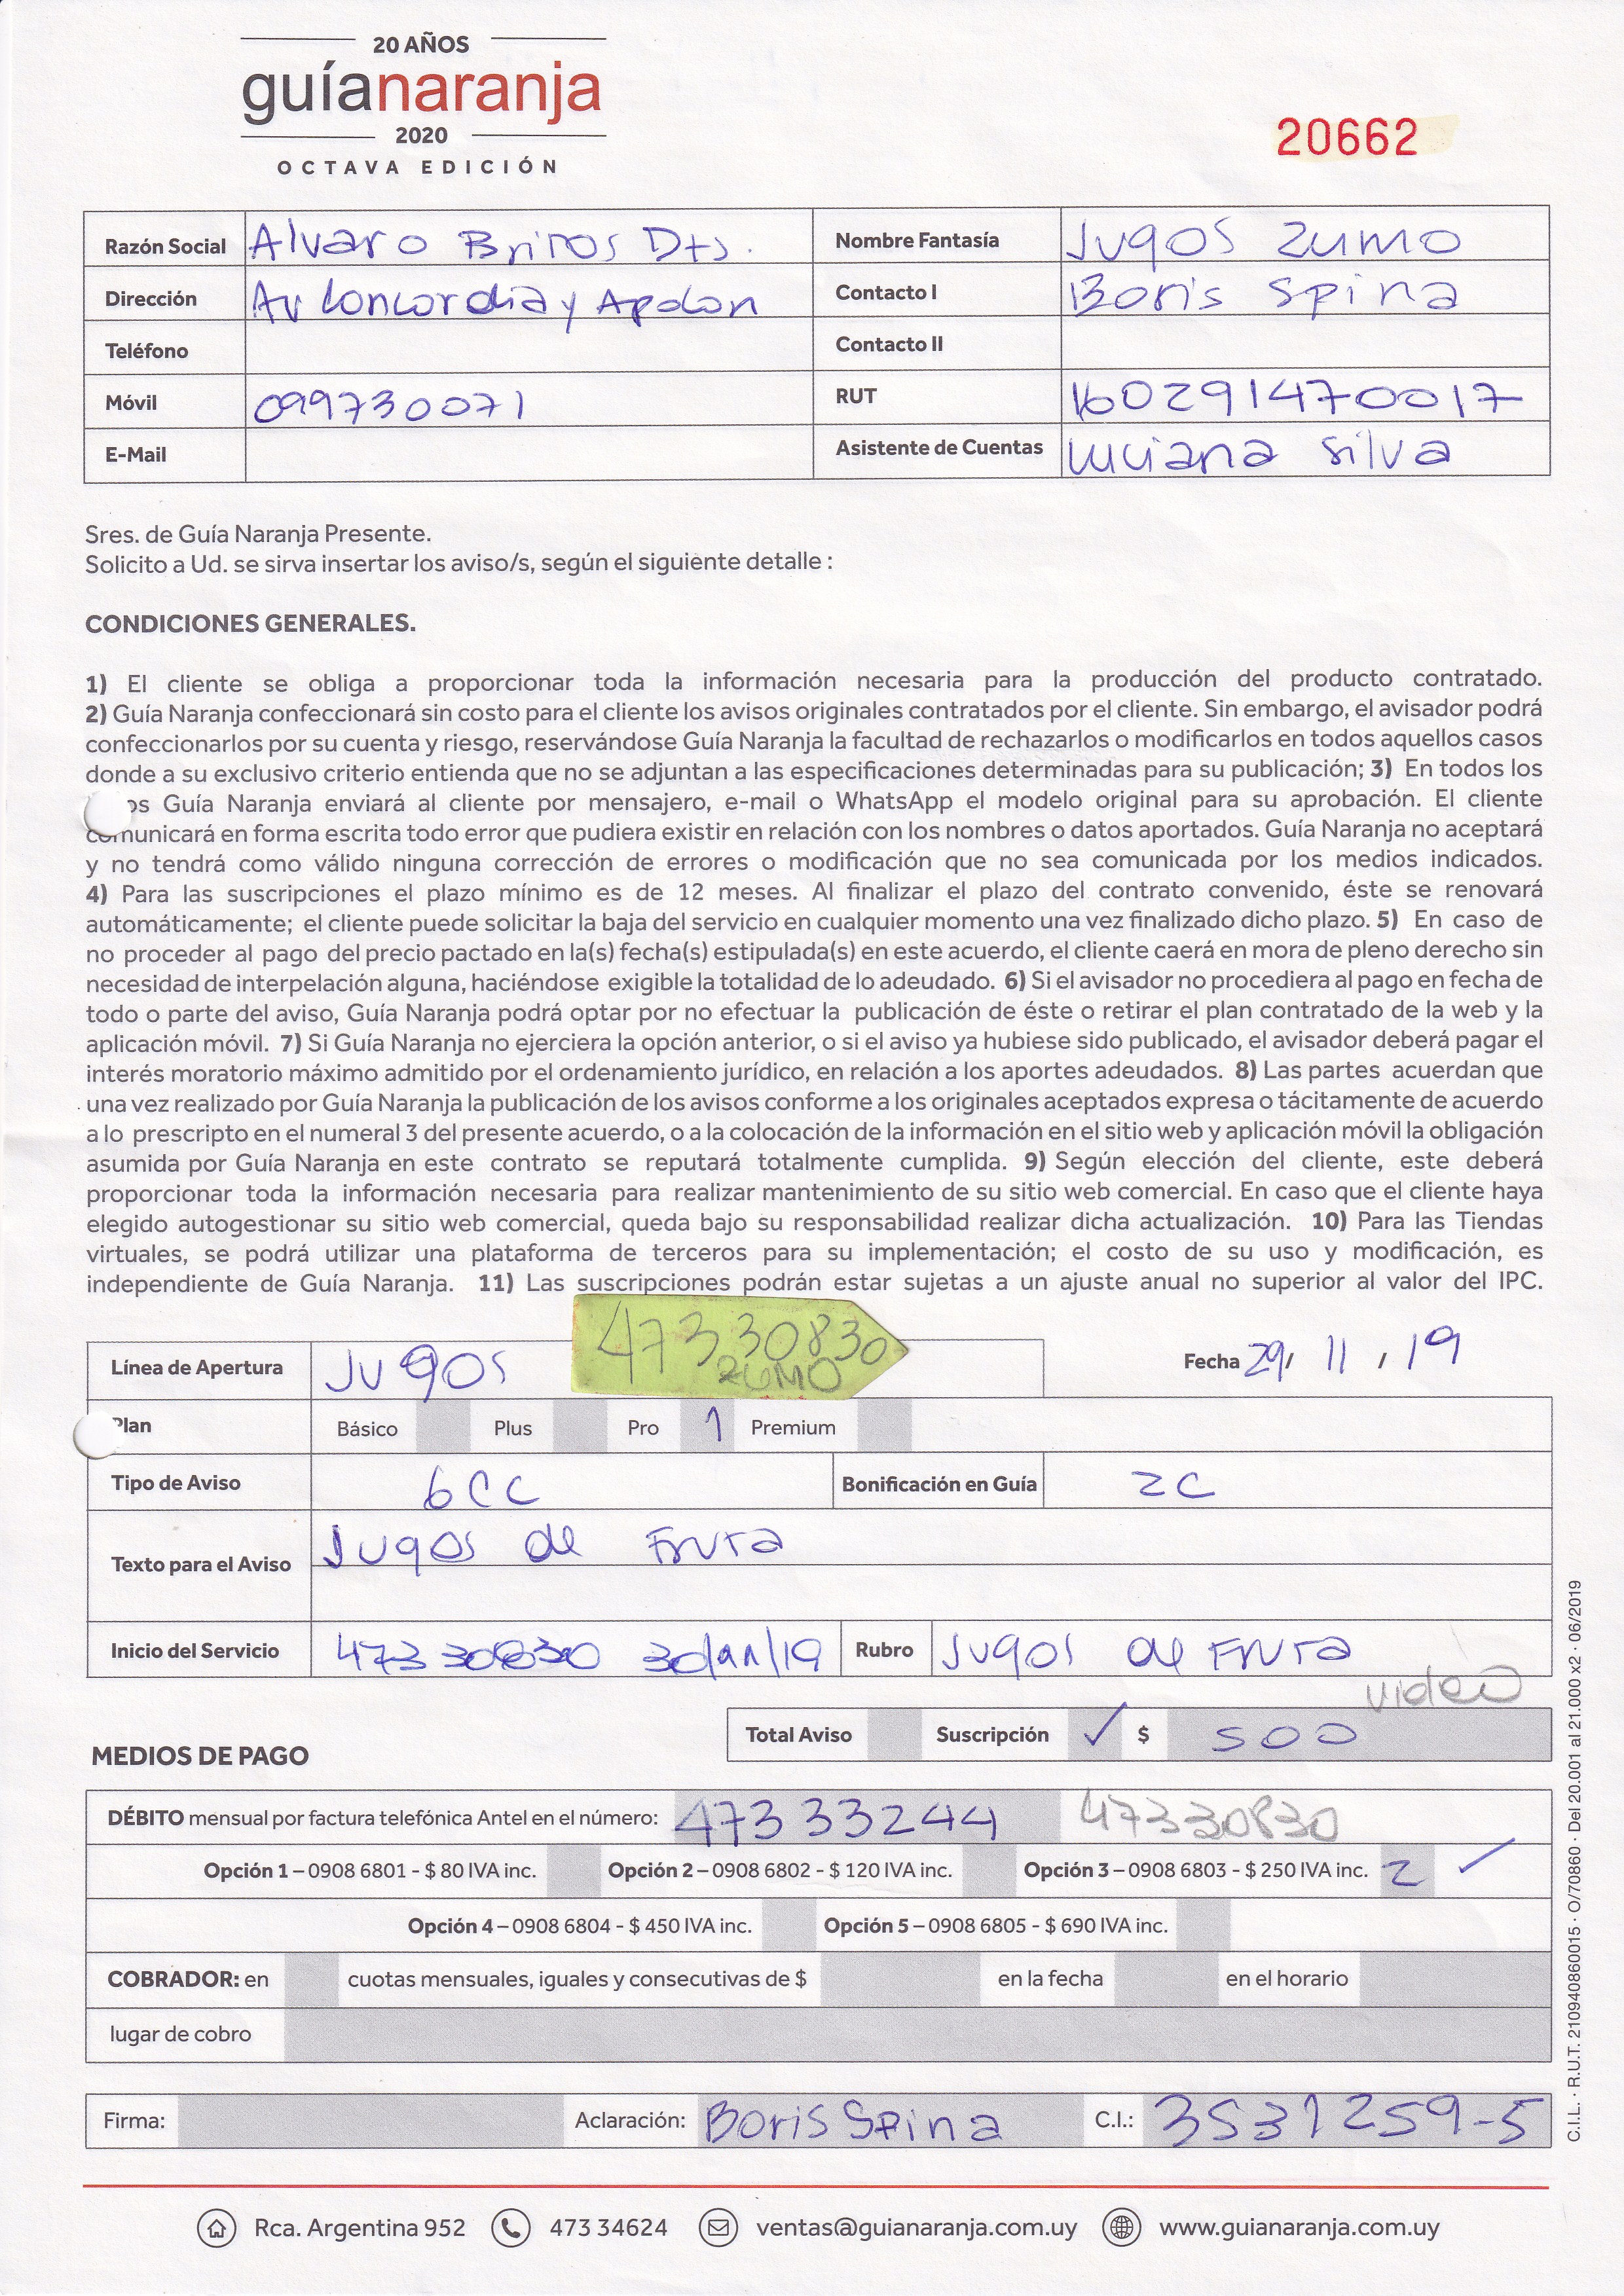 20 AÑOS
guíanaranja
2020
OCTAVA EDICIÓN
20662
Razón Social Alvaro Dts. Nombre Fantasía Jugos Zumo
Dirección Av Concordia y Contacto I Boris Spina
Teléfono Contacto II
Móvil 099730071 RUT 160291470017
E-Mail Asistente de Cuentas Luciana Silva
Sres. de Guía Naranja Presente.
Solicito a Ud. se sirva insertar los aviso/s, según el siguiente detalle :
CONDICIONES GENERALES.
1) El cliente se obliga a proporcionar toda la información necesaria para la producción del producto contratado.
2) Guía Naranja confeccionará sin costo para el cliente los avisos originales contratados por el cliente. Sin embargo, el avisador podrá
confeccionarlos por su cuenta y riesgo, reservándose Guía Naranja la facultad de rechazarlos o modificarlos en todos aquellos casos
donde a su exclusivo criterio entienda que no se adjuntan a las especificaciones determinadas para su publicación; 3) En todos los
os Guía Naranja enviará al cliente por mensajero, e-mail o WhatsApp el modelo original para su aprobación. El cliente
comunicará en forma escrita todo error que pudiera existir en relación con los nombres o datos aportados. Guía Naranja no aceptará
y no tendrá como válido ninguna corrección de errores o modificación que no sea comunicada por los medios indicados.
4) Para las suscripciones el plazo mínimo es de 12 meses. Al finalizar el plazo del contrato convenido, éste se renovará
automáticamente; el cliente puede solicitar la baja del servicio en cualquier momento una vez finalizado dicho plazo. 5) En caso de
no proceder al pago del precio pactado en la(s) fecha(s) estipulada(s) en este acuerdo, el cliente caerá en mora de pleno derecho sin
necesidad de interpelación alguna, haciéndose exigible la totalidad de lo adeudado. 6) Si el avisador no procediera al pago en fecha de
todo o parte del aviso, Guía Naranja podrá optar por no efectuar la publicación de éste o retirar el plan contratado de la web y la
aplicación móvil. 7) Si Guía Naranja no ejerciera la opción anterior, o si el aviso ya hubiese sido publicado, el avisador deberá pagar el
interés moratorio máximo admitido por el ordenamiento jurídico, en relación a los aportes adeudados. 8) Las partes acuerdan que
una vez realizado por Guía Naranja la publicación de los avisos conforme a los originales aceptados expresa o tácitamente de acuerdo
a lo prescripto en el numeral 3 del presente acuerdo, o a la colocación de la información en el sitio web y aplicación móvil la obligación
asumida por Guía Naranja en este contrato se reputará totalmente cumplida. 9) Según elección del cliente, este deberá
proporcionar toda la información necesaria para realizar mantenimiento de su sitio web comercial. En caso que el cliente haya
elegido autogestionar su sitio web comercial, queda bajo su responsabilidad realizar dicha actualización. 10) Para las Tiendas
virtuales, se podrá utilizar una plataforma de terceros para su implementación; el costo de su uso y modificación, es
independiente de Guía Naranja. 11) Las suscripciones podrán estar sujetas a un ajuste anual no superior al valor del IPC.
473 30830
ZUMO
Línea de Apertura Jugos Fecha 29/ 11 / 19
Plan Básico Plus Pro 1 Premium
Tipo de Aviso 6CC Bonificación en Guía 2C
Texto para el Aviso Jugos de Fruta
Inicio del Servicio 473 30830 30/11/19 Rubro Jugos de Fruta
video
Total Aviso Suscripción ✓ $ 500
MEDIOS DE PAGO
DÉBITO mensual por factura telefónica Antel en el número: 473 33244 47330830
Opción 1 – 0908 6801 - $ 80 IVA inc. Opción 2 – 0908 6802 - $ 120 IVA inc. Opción 3 – 0908 6803 - $ 250 IVA inc. 2 ✓
Opción 4 – 0908 6804 - $ 450 IVA inc. Opción 5 – 0908 6805 - $ 690 IVA inc.
COBRADOR: en cuotas mensuales, iguales y consecutivas de $ en la fecha en el horario
lugar de cobro
Firma: Aclaración: Boris Spina C.I.: 3531259-5
Rca. Argentina 952 473 34624 ventas@guianaranja.com.uy www.guianaranja.com.uy
C.I.L. · R.U.T. 210940860015 · O/70860 · Del 20.001 al 21.000 x2 · 06/2019